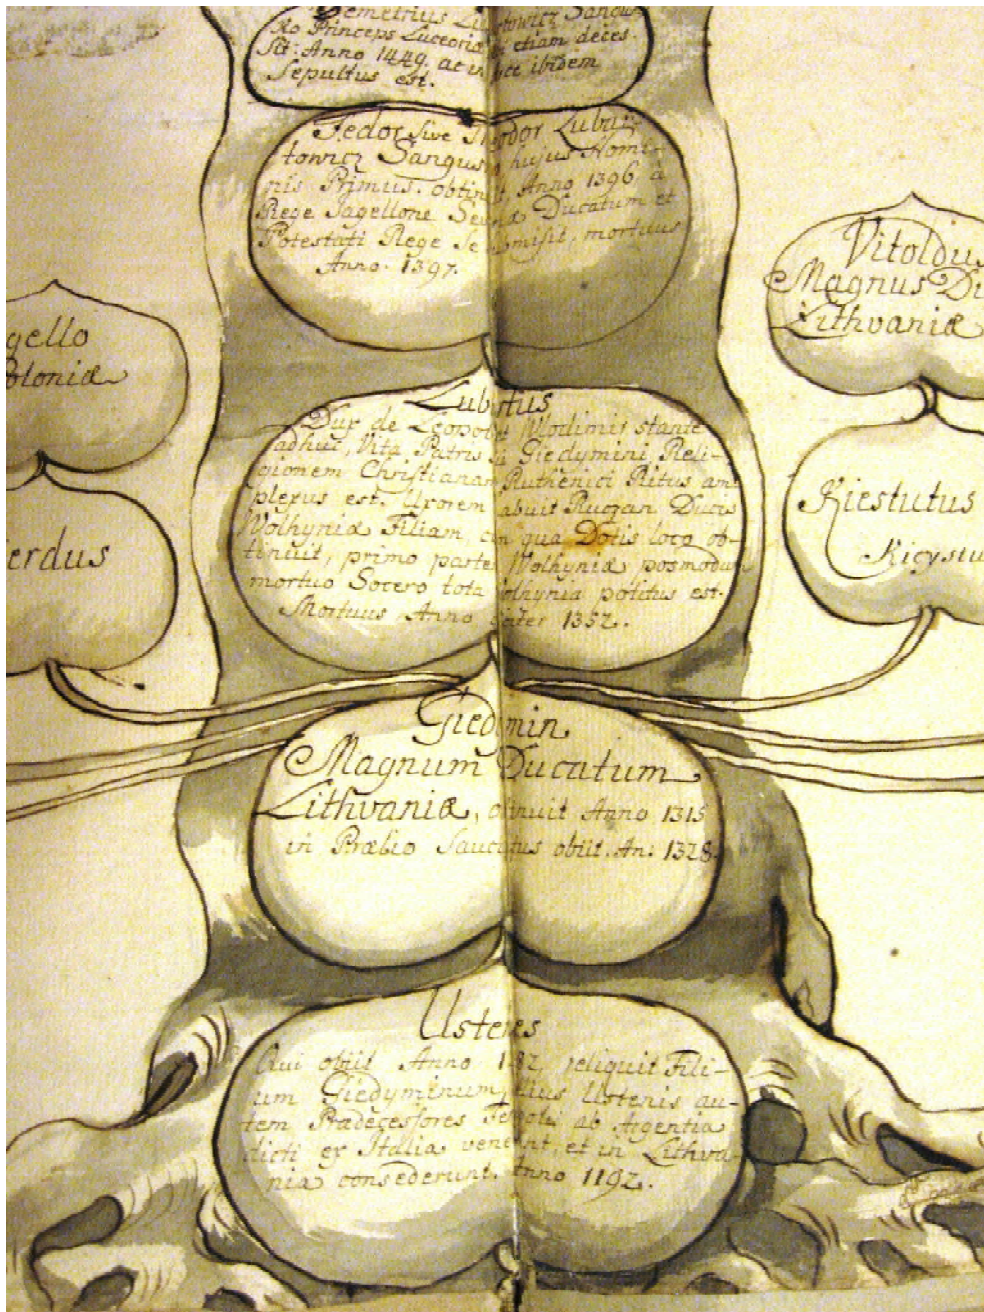 Demetrius
Princeps Luceoria etiam deces-
sit Anno 1449. ac in ibidem
Sepultus est.
Fedor sive Theodor Lubar-
towicz Sangus hujus Nomi-
nis Primus. obtinuit, Anno 1396 a
Rege Jagellone Ducatum et
Potestati Rege Se mortuus
Anno. 1397.
Vitoldus
Magnus
Lithvaniæ
gello
oloniæ
Lubartus
Dux de Wlodimir stante
adhuc, Vita, Patris sui Giedymini, Reli-
gionem Christianam Ruthenici Ritus am-
plexus est. Uxorem habuit Ducis
Wolhyniæ Filiam, cum qua Dotis loco ob-
tinuit, primo parte Wolhyniæ posmodum
mortuo Socero tota Wolhynia potitus est.
Mortuus Anno 1352.
Kiestutus
erdus
Giedimin
Magnum Ducatum
Lithvaniæ, obtinuit Anno 1315
in Prælio Sauciatus obiit. An: 1328.
Ustenes
Qui obiit Anno reliquit Fili-
um Giedyminum, Ustenis au-
tem Prædecessores ab Argentia
dicti ex Italia venerunt, et in Lithva-
nia consederunt. Anno 1192.